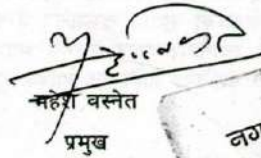 महेश वस्नेत
प्रमुख
नग